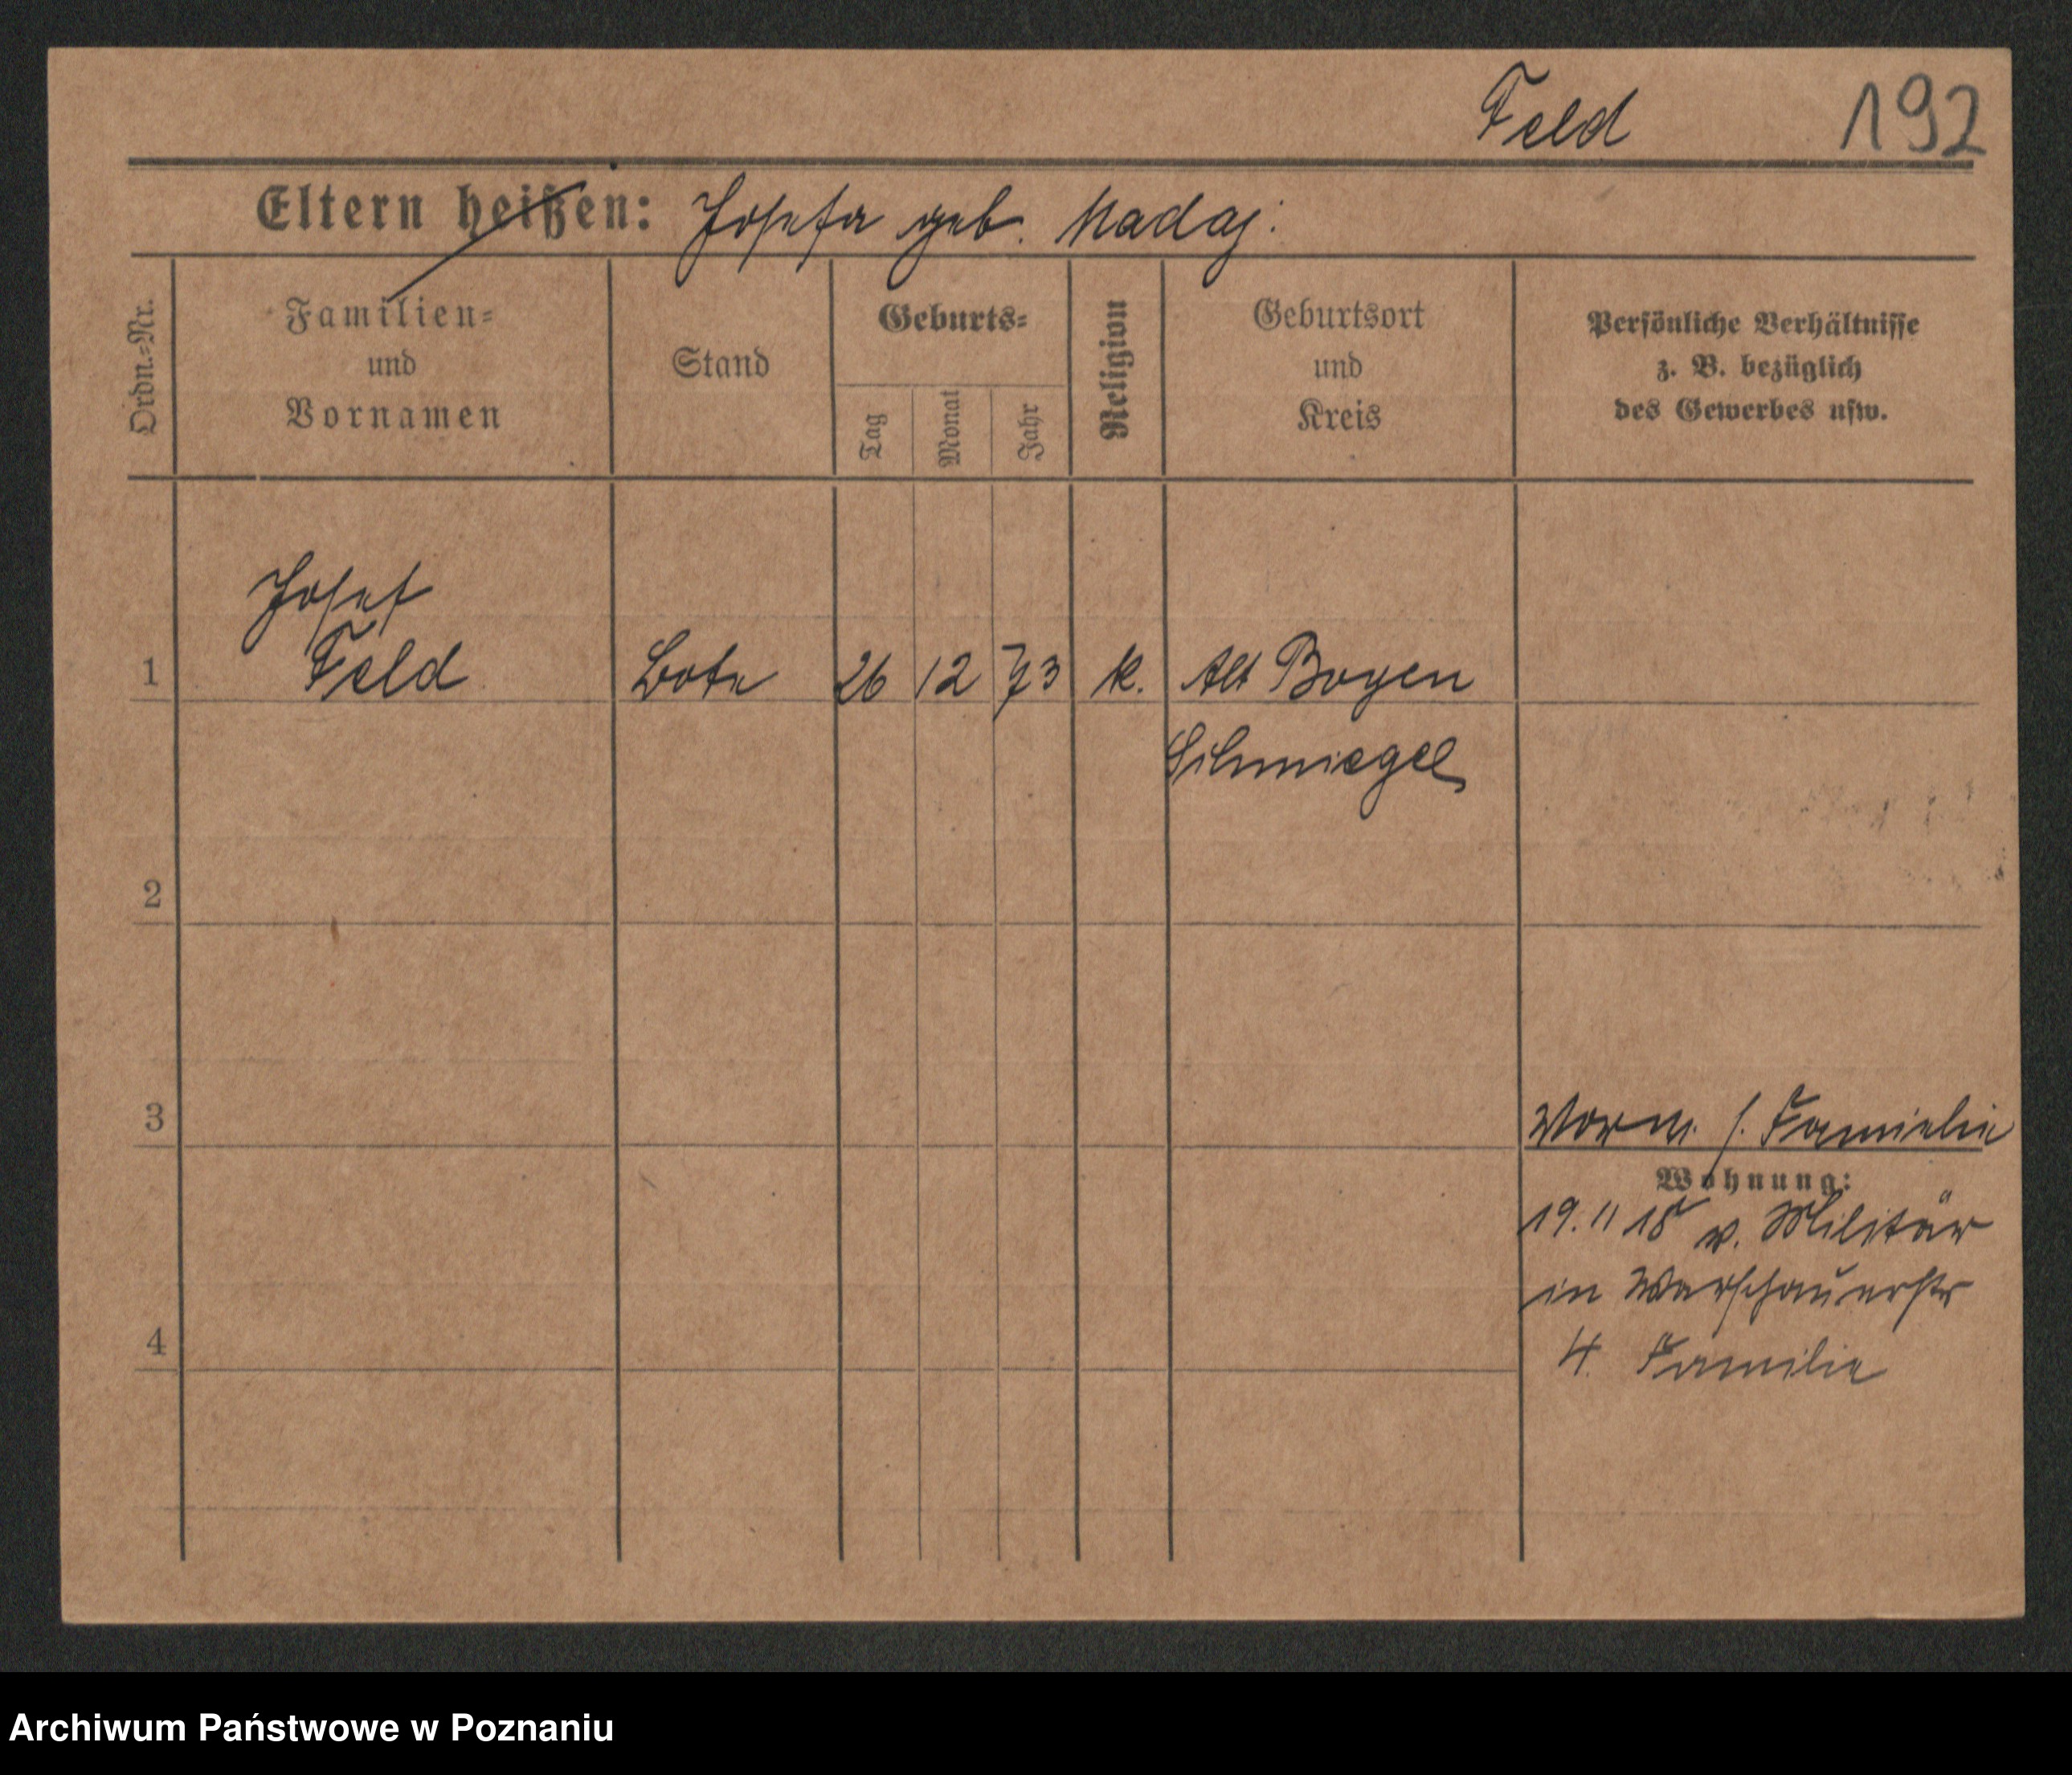 Feld 192
Eltern heißen: Josefa geb. Nadaj.
Ordn.-Nr.
Familien-
und
Vornamen
Stand
Geburts-
Tag
Monat
Jahr
Religion
Geburtsort
und
Kreis
Persönliche Verhältnisse
z. B. bezüglich
des Gewerbes usw.
Josef
1 Feld Bote 26 12 73 k. Alt Boyen
Schmiegel
2
3
s. Familie
Wohnung:
19. 11 18 v. Militär
in Warschauerstr
4. Familie
4
Archiwum Państwowe w Poznaniu